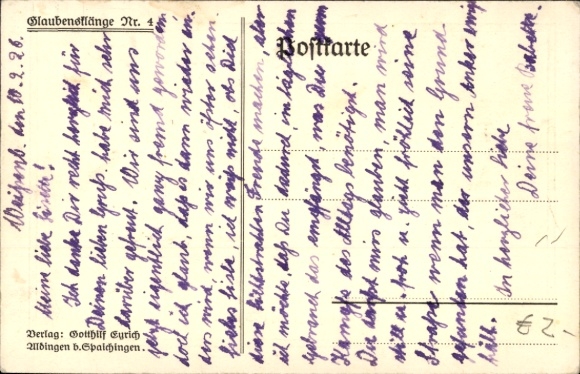 Glaubensklänge Nr. 4
Postkarte
Verlag: Gotthilf Eyrich
Aldingen b. Spaichingen.
den 10.2.26.
Meine liebe
Ich danke Dir recht herzlich für
Deinen lieben Gruß, habe mich sehr
darüber gefreut. Wir sind uns
jetzt eigentlich ganz fremd geworden
doch ich glaub, daß es dann wieder an-
ders wird, wenn wir uns öfter sehen.
ich weiß nicht ob Dich
diese Freude machen, aber
ich möchte, daß Du dadurch, im täglichen
das empfängst, was Du zum
Kampf des Alltags benötigst.
Du darfst mirs glauben, man wird
still u. froh u. geht fröhlich seine
Straße wenn man den Grund
gefunden hat, der unsern Anker ewig
hält. In herzlicher Liebe
Deine treue
€ 2,-